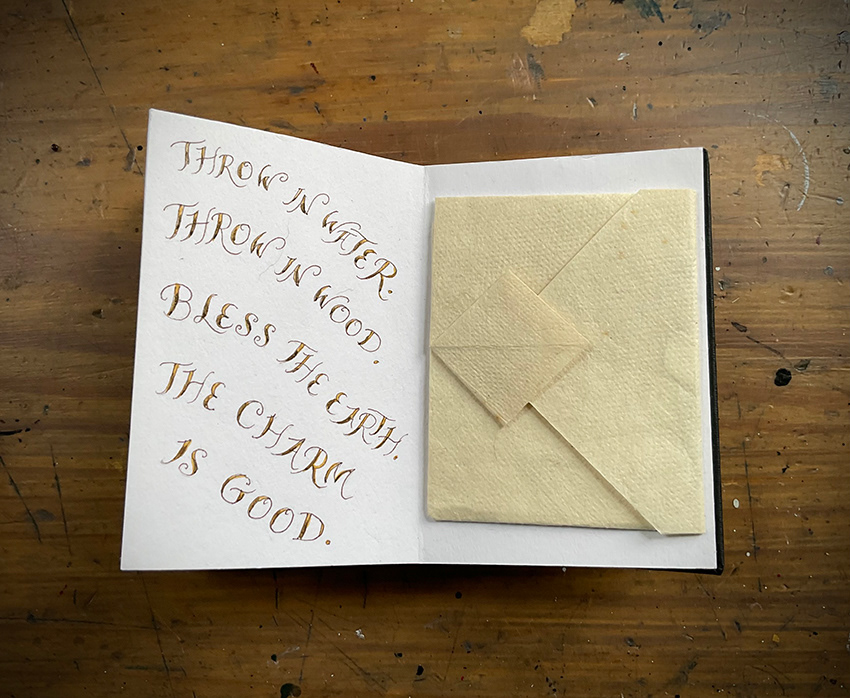 THROW IN WATER.
THROW IN WOOD.
BLESS THE EARTH.
THE CHARM
IS GOOD.